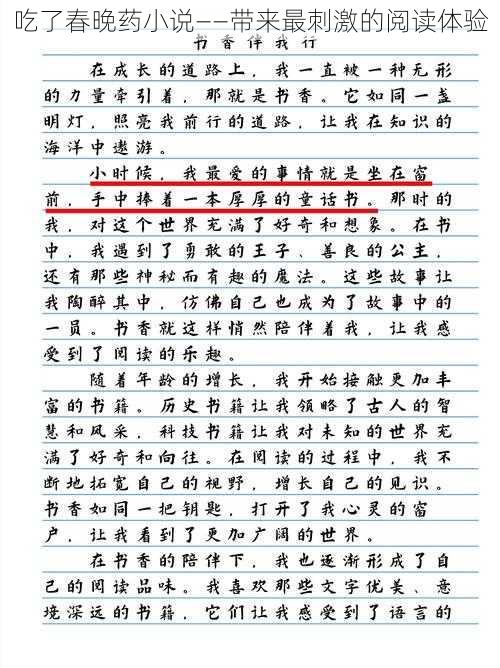 吃了春晚药小说——带来最刺激的阅读体验
书香伴我行
在成长的道路上，我一直被一种无形
的力量牵引着，那就是书香。它如同一盏
明灯，照亮我前行的道路，让我在知识的
海洋中遨游。
小时候，我最爱的事情就是坐在窗
前，手中捧着一本厚厚的童话书。那时的
我，对这个世界充满了好奇和想象。在书
中，我遇到了勇敢的王子、善良的公主，
还有那些神秘而有趣的魔法。这些故事让
我陶醉其中，仿佛自己也成为了故事中的
一员。书香就这样悄然陪伴着我，让我感
受到了阅读的乐趣。
随着年龄的增长，我开始接触更加丰
富的书籍。历史书籍让我领略了古人的智
慧和风采，科技书籍让我对未知的世界充
满了好奇和向往。在阅读的过程中，我不
断地拓宽自己的视野，增长自己的见识。
书香如同一把钥匙，打开了我心灵的窗
户，让我看到了更加广阔的世界。
在书香的陪伴下，我也逐渐形成了自
己的阅读品味。我喜欢那些文字优美、意
境深远的书籍，它们让我感受到了语言的